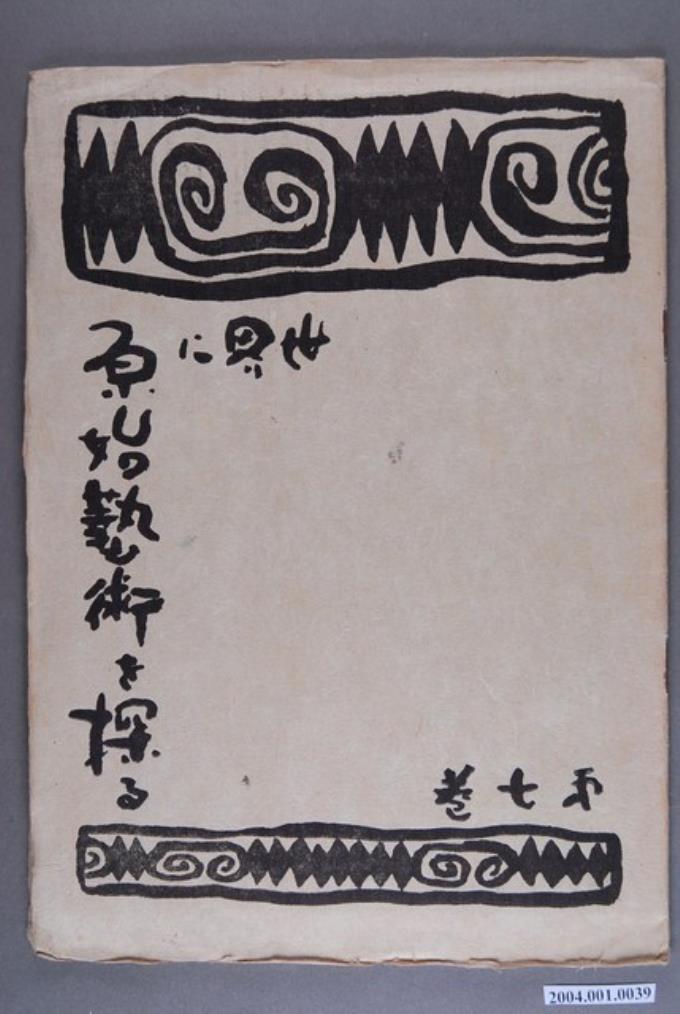 世界に
原始藝術を探る
第七巻
2004.001.0039